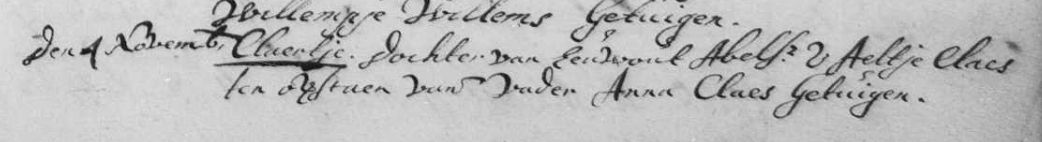 Willempje Willems Getuigen.
Den 4 Novemb. Claertje. dochter van Leuwout Abelsz. & Aeltje Claes
ten overstaen van Vader Anna Claes Getuigen.